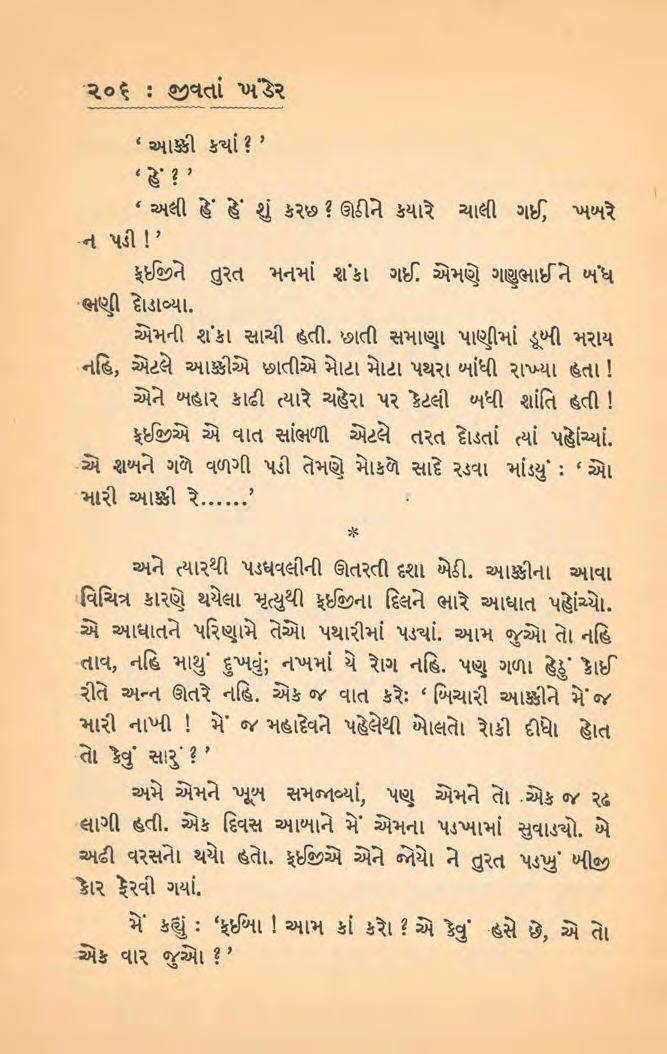 ૨૦૬ : જીવતાં ખંડેર
‘ આક્કી કયાં ? ’
‘ હેં ? ’
‘ અલી હેં હેં શું કરછ ? ઊઠીને કયારે ચાલી ગઈ, ખબરે
ન પડી ! ’
ફઈજીને તુરત મનમાં શંકા ગઈ. એમણે ગણુભાઈને બંધ
ભણી દોડાવ્યા.
એમની શંકા સાચી હતી. છાતી સમાણા પાણીમાં ડૂબી મરાય
નહિ, એટલે આક્કીએ છાતીએ મોટા મોટા પથરા બાંધી રાખ્યા હતા !
એને બહાર કાઢી ત્યારે ચહેરા પર કેટલી બધી શાંતિ હતી !
ફઈજીએ એ વાત સાંભળી એટલે તરત દોડતાં ત્યાં પહોંચ્યાં.
એ શબને ગળે વળગી પડી તેમણે મોકળે સાદે રડવા માંડયું : ‘ ઓ
મારી આક્કી રે......’
*
અને ત્યારથી પડધવલીની ઊતરતી દશા બેઠી. આક્કીના આવા
વિચિત્ર કારણે થયેલા મૃત્યુથી ફઈજીના દિલને ભારે આઘાત પહોંચ્યો.
એ આઘાતને પરિણામે તેઓ પથારીમાં પડયાં. આમ જુઓ તો નહિ
તાવ, નહિ માથું દુખવું; નખમાં યે રોગ નહિ. પણ ગળા હેઠું કોઈ
રીતે અન્ન ઊતરે નહિ. એક જ વાત કરેઃ ‘ બિચારી આક્કીને મેં જ
મારી નાખી ! મેં જ મહાદેવને પહેલેથી બોલતો રોકી દીધો હોત
તો કેવું સારું ? ’
અમે એમને ખૂબ સમજાવ્યાં, પણ એમને તો એક જ રઢ
લાગી હતી. એક દિવસ આબાને મેં એમના પડખામાં સુવાડયો. બે
અઢી વરસનો થયો હતો. ફઈજીએ એને જોયો ને તુરત પડખું બીજી
કોર ફેરવી ગયાં.
મેં કહ્યું : ‘ફઈબા ! આમ કાં કરો ? એ કેવું હસે છે, એ તો
એક વાર જુઓ ? ’